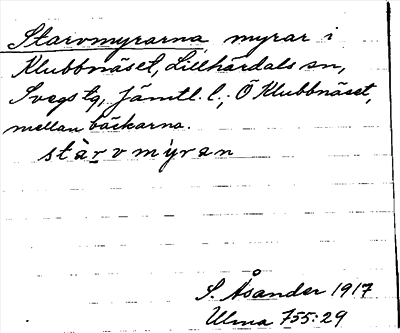 Starvmyrarna, myrar i
Klubbnäset, Lillhärdals sn,
Svegs tg, Jämtl. l.; Ö Klubbnäset,
mellan bäckarna.
stàrvmýran
S. Åsander 1917
Ulma 755:29